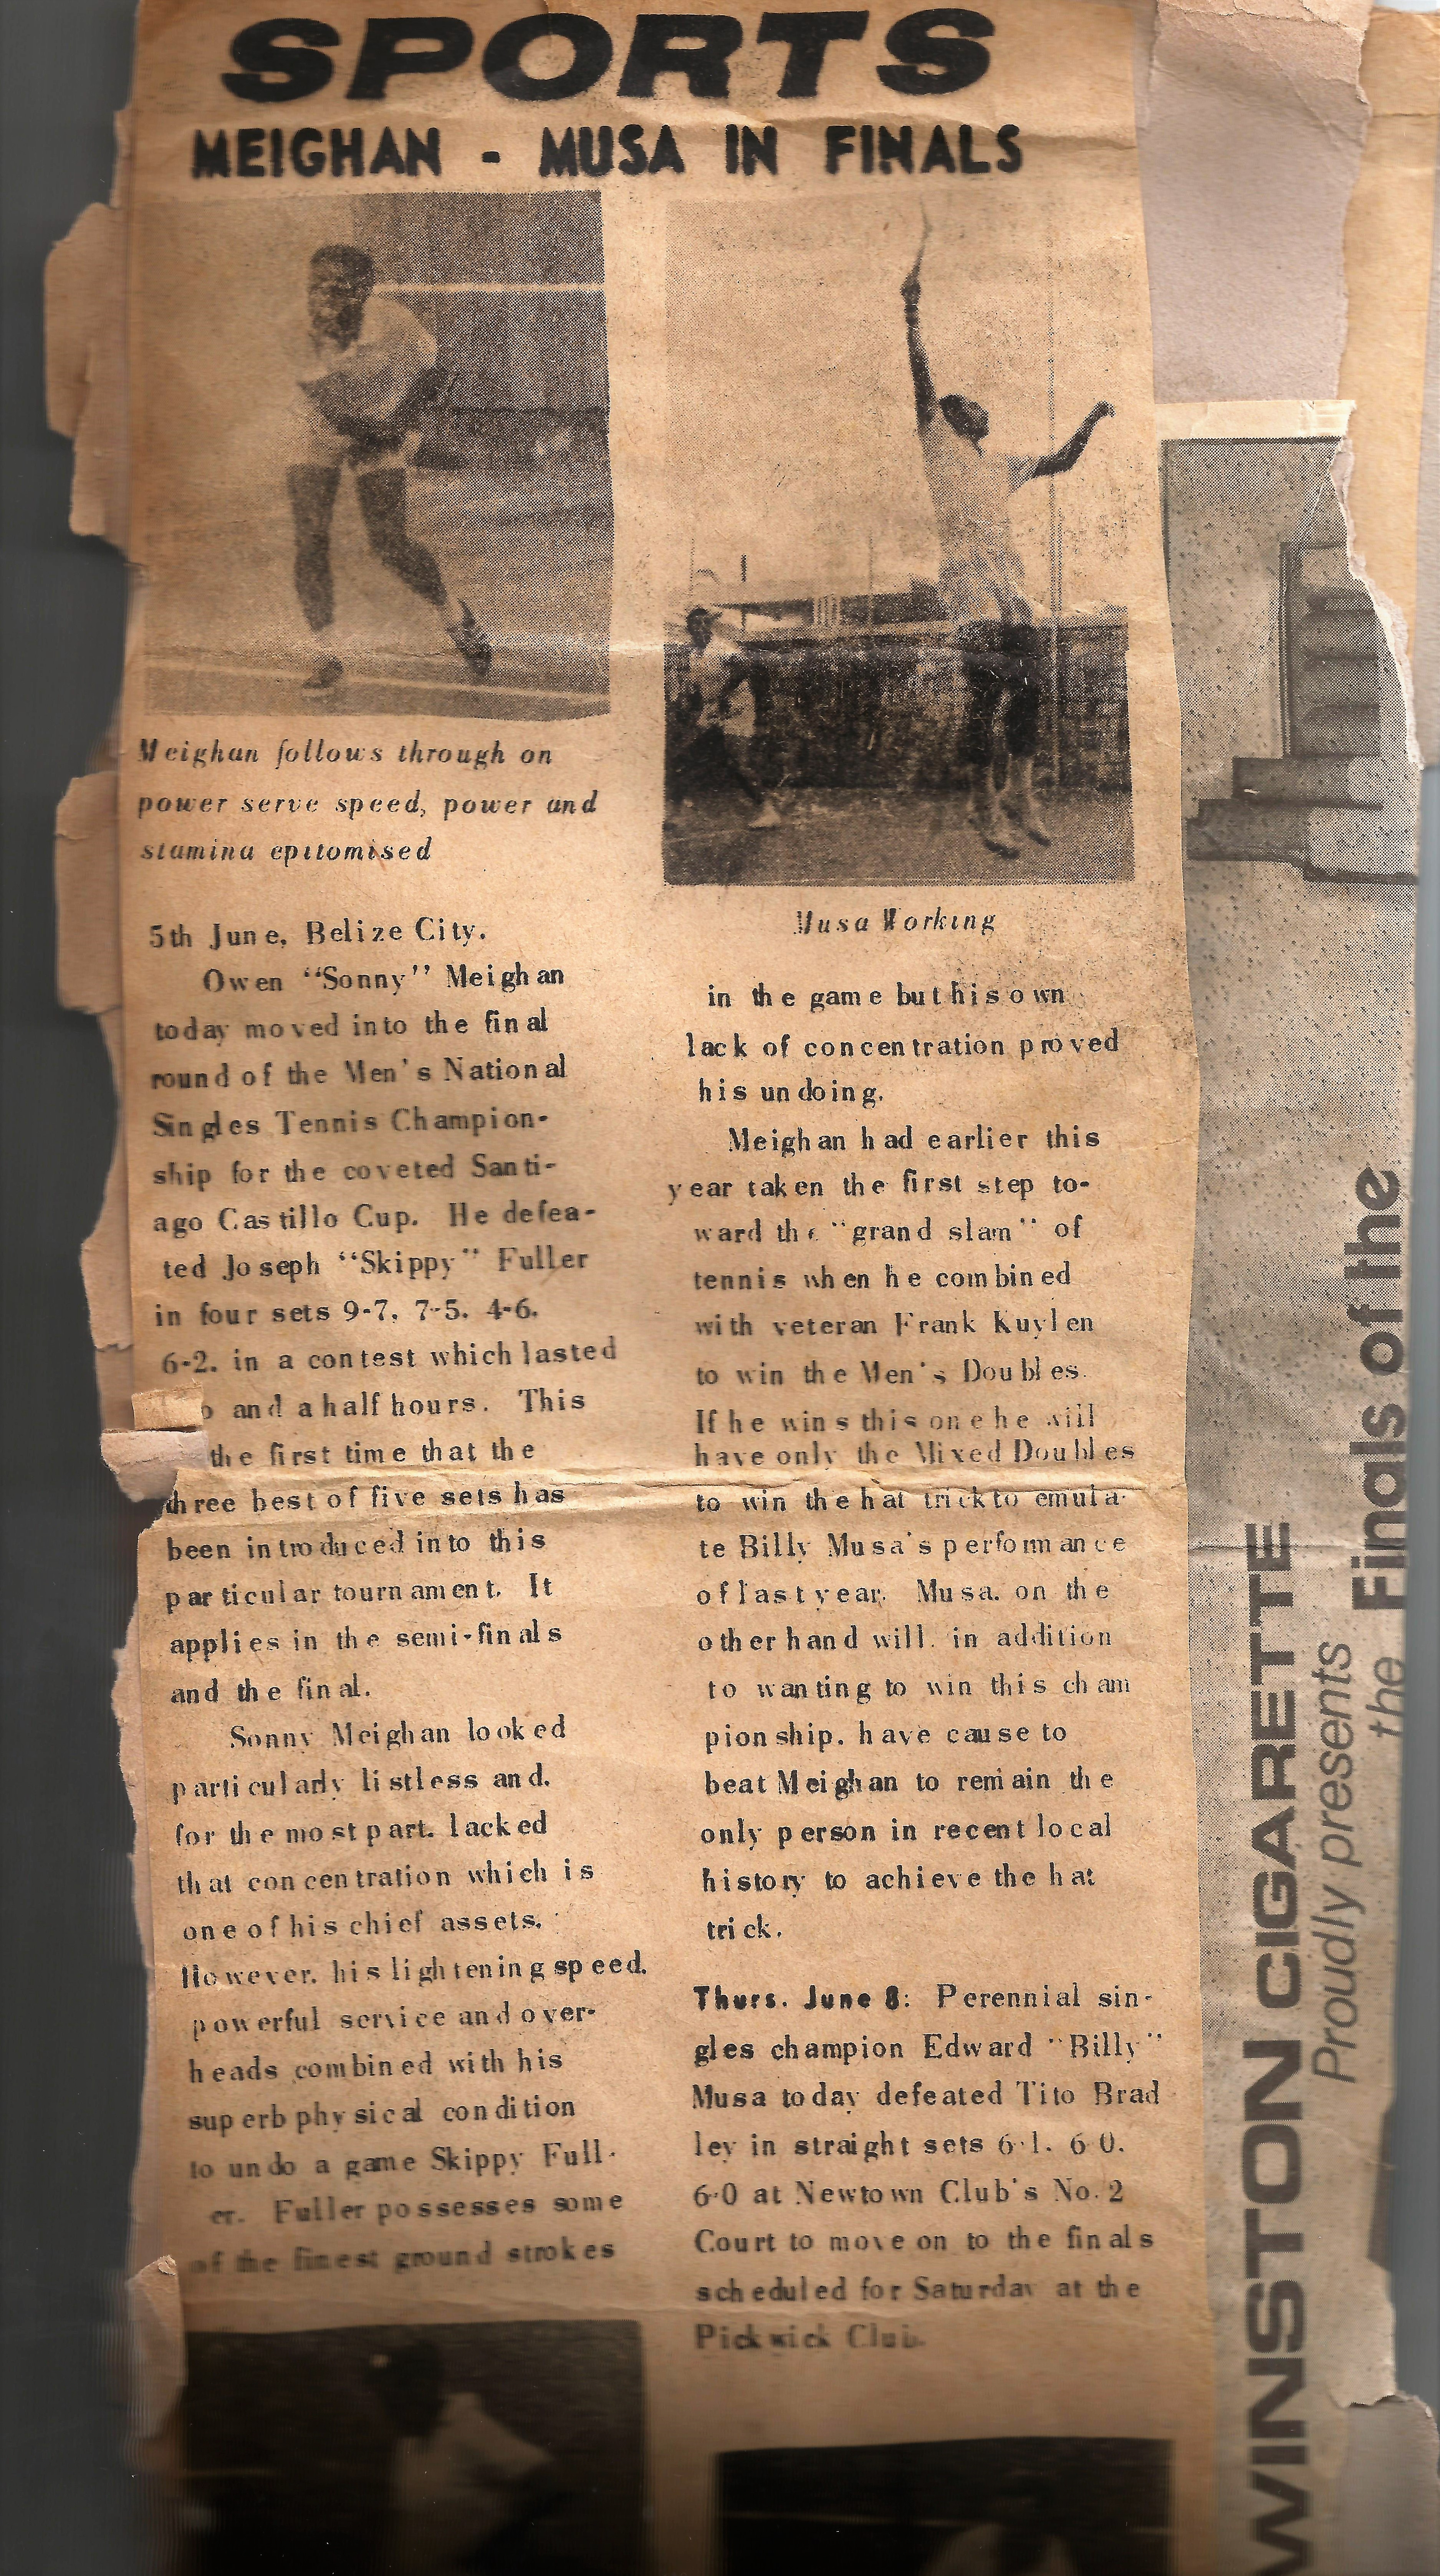 SPORTS
MEIGHAN - MUSA IN FINALS
Meighan follows through on
power serve speed, power and
stamina epitomised
5th June, Belize City.
Owen "Sonny" Meighan
today moved into the final
round of the Men's National
Singles Tennis Champion-
ship for the coveted Santi-
ago Castillo Cup. He defea-
ted Joseph "Skippy" Fuller
in four sets 9-7, 7-5, 4-6,
6-2, in a contest which lasted
and a half hours. This
the first time that the
three best of five sets has
been introduced into this
particular tournament. It
applies in the semi-finals
and the final.
Sonny Meighan looked
particularly listless and,
for the most part, lacked
that concentration which is
one of his chief assets.
However, his lightening speed,
powerful service and over-
heads combined with his
superb physical condition
to undo a game Skippy Full-
er. Fuller possesses some
of the finest ground strokes
Musa Working
in the game but his own
lack of concentration proved
his undoing.
Meighan had earlier this
year taken the first step to-
ward the "grand slam" of
tennis when he combined
with veteran Frank Kuylen
to win the Men's Doubles.
If he wins this one he will
have only the Mixed Doubles
to win the hat trick to emula-
te Billy Musa's performance
of last year. Musa, on the
other hand will, in addition
to wanting to win this cham
pionship, have cause to
beat Meighan to remain the
only person in recent local
history to achieve the hat
trick.
Thurs. June 8: Perennial sin-
gles champion Edward "Billy"
Musa today defeated Tito Brad
ley in straight sets 6-1, 6-0,
6-0 at Newtown Club's No. 2
Court to move on to the finals
scheduled for Saturday at the
Pickwick Club.
WINSTON CIGARETTE
Proudly presents
the Finals of the